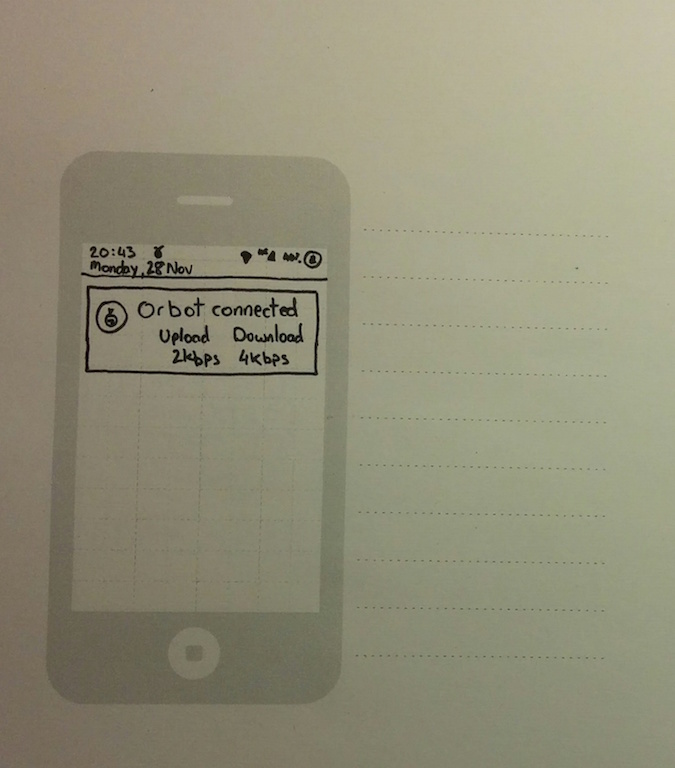 20:43
Monday, 28 Nov
Orbot connected
Upload Download
2kbps 4kbps